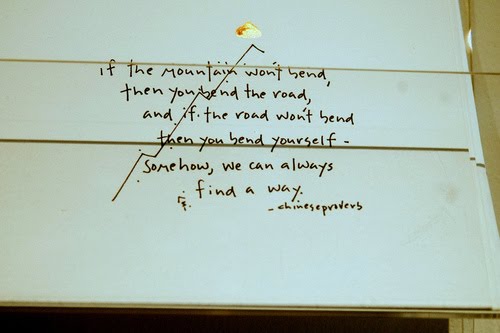 if the mountain won't bend,
then you bend the road,
and if the road won't bend
then you bend yourself -
Somehow, we can always
find a way.
- chineseproverb